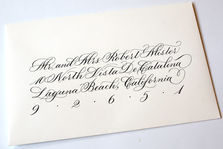 Mr. and Mrs Robert Mister
10 North Vista De Catalina
Laguna Beach, California
9 · 2 · 6 · 5 · 1